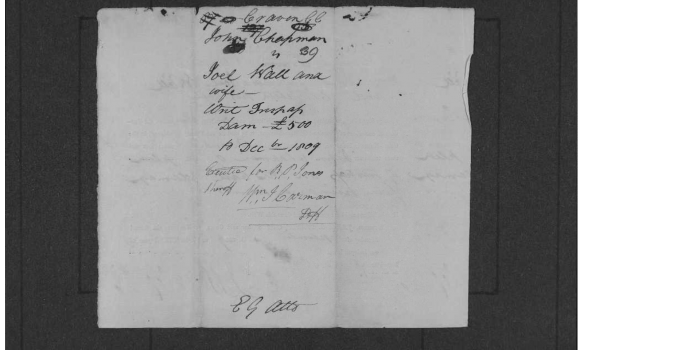 Craven CC
John Chapman
vs 39
Joel Wall and
wife —
Writ Trespass
Dam — £500
to Decbr 1809
Executed for R. P. Jones
Sheriff
Wm J.
DShff
E G Atto